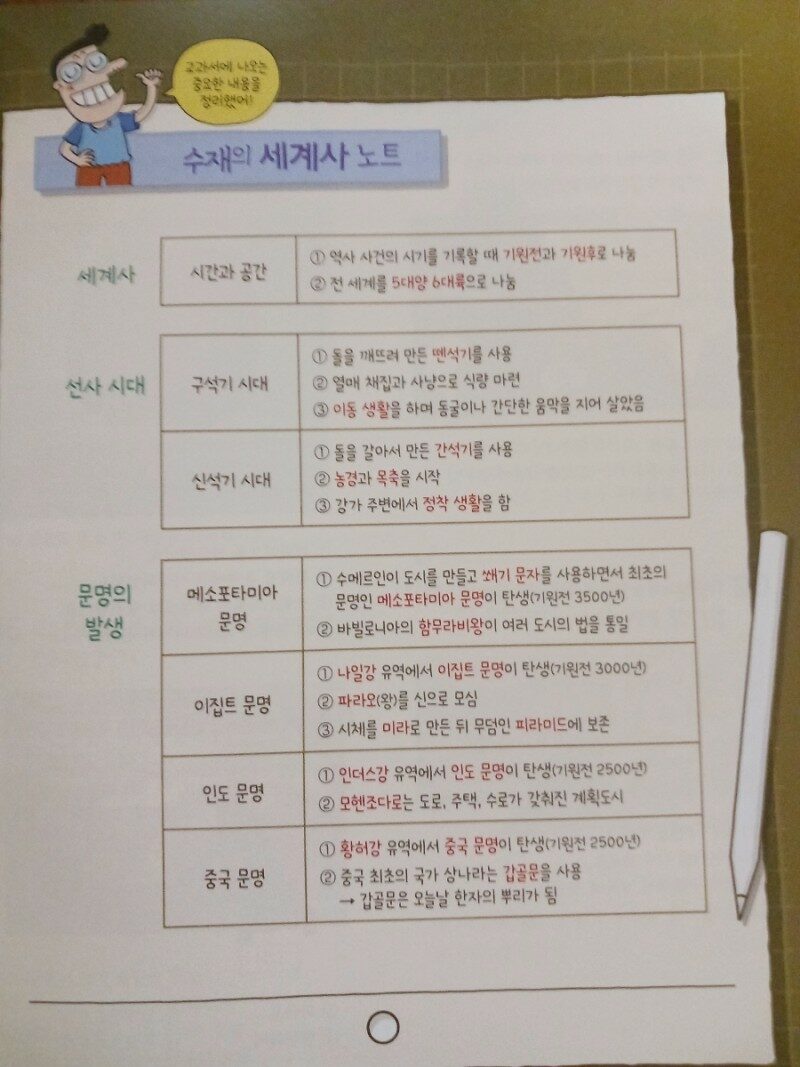 교과서에 나오는
중요한 내용을
정리했어!
수재의 세계사 노트
세계사
시간과 공간
① 역사 사건의 시기를 기록할 때 기원전과 기원후로 나눔
② 전 세계를 5대양 6대륙으로 나눔
선사 시대
구석기 시대
① 돌을 깨뜨려 만든 뗀석기를 사용
② 열매 채집과 사냥으로 식량 마련
③ 이동 생활을 하며 동굴이나 간단한 움막을 지어 살았음
신석기 시대
① 돌을 갈아서 만든 간석기를 사용
② 농경과 목축을 시작
③ 강가 주변에서 정착 생활을 함
문명의
발생
메소포타미아
문명
① 수메르인이 도시를 만들고 쐐기 문자를 사용하면서 최초의
문명인 메소포타미아 문명이 탄생(기원전 3500년)
② 바빌로니아의 함무라비왕이 여러 도시의 법을 통일
이집트 문명
① 나일강 유역에서 이집트 문명이 탄생(기원전 3000년)
② 파라오(왕)를 신으로 모심
③ 시체를 미라로 만든 뒤 무덤인 피라미드에 보존
인도 문명
① 인더스강 유역에서 인도 문명이 탄생(기원전 2500년)
② 모헨조다로는 도로, 주택, 수로가 갖춰진 계획도시
중국 문명
① 황허강 유역에서 중국 문명이 탄생(기원전 2500년)
② 중국 최초의 국가 상나라는 갑골문을 사용
→ 갑골문은 오늘날 한자의 뿌리가 됨